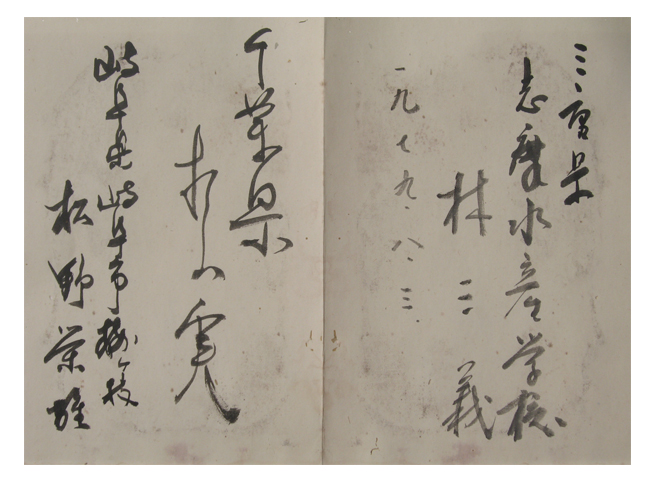 三重県
志摩水産学校
林三義
一九七九.八.三
千葉県
岐阜県岐阜市梅ヶ枝
松野栄雄